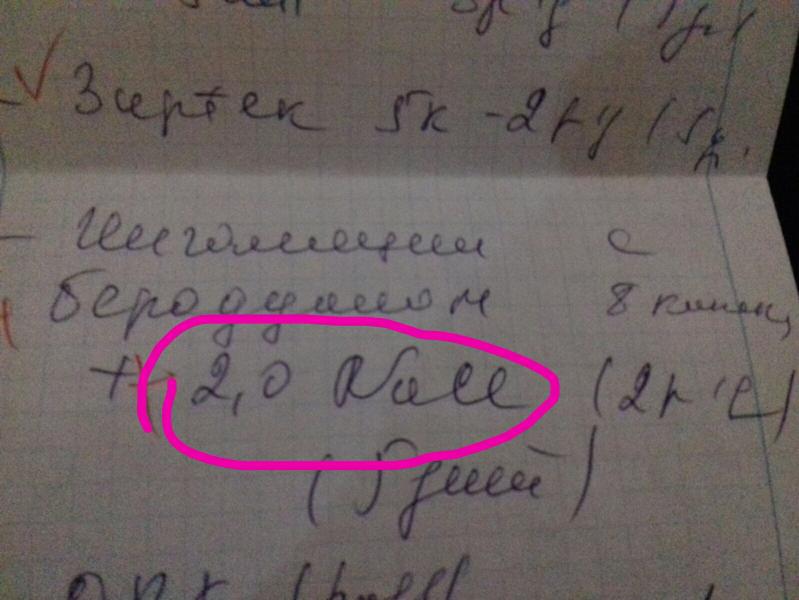 Зиртек 5к - 2р/д (5д.
- Ингаляции с
беродуалом 8 капель
+ 2,0 NaCl (2р/д)
(5 дней)